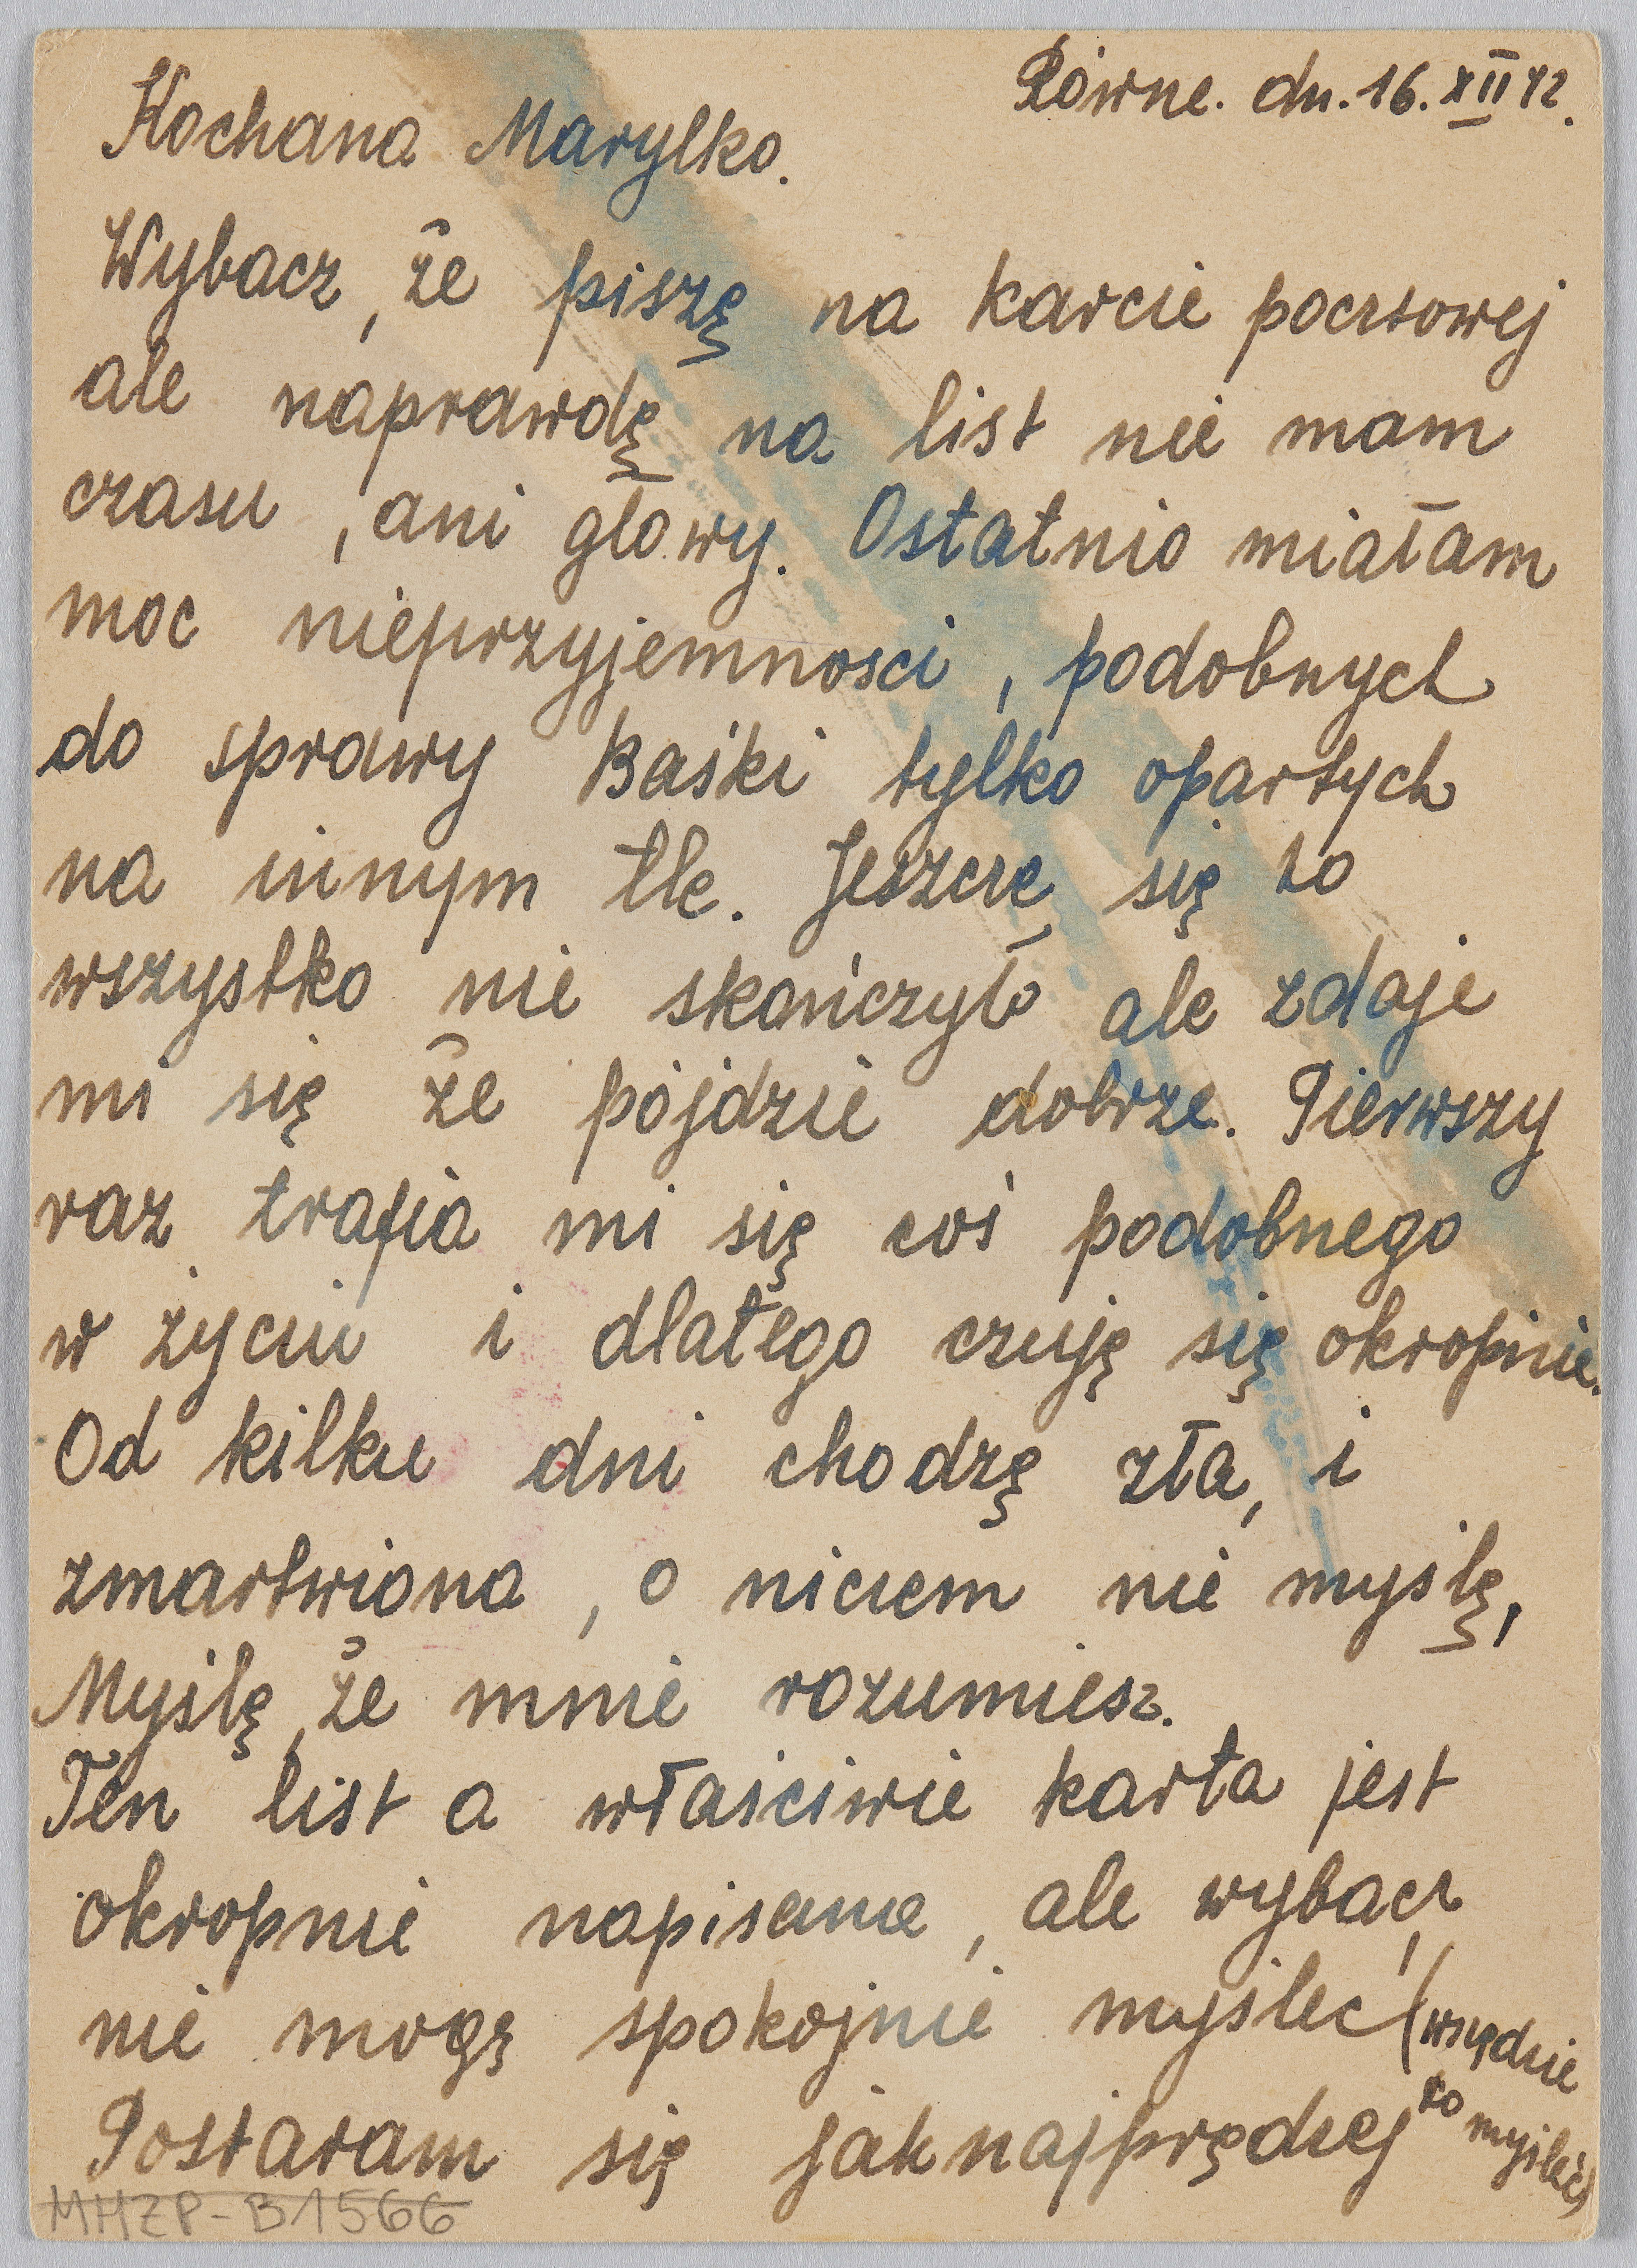 Równe. dn. 16. XII 42.
Kochana Marylko.
Wybacz, że piszę na karcie pocztowej
ale naprawdę na list nie mam
czasu, ani głowy. Ostatnio miałam
moc nieprzyjemnosci, podobnych
do sprawy Baśki tylko opartych
na innym tle. Jeszcze się to
wszystko nie skończyło ale zdaje
mi się że pójdzie dobrze. Pierwszy
raz trafia mi się coś podobnego
w życiu i dlatego czuję się okropnie.
Od kilku dni chodzę zła, i
zmartwiona, o niczem nie myślę,
Myślę, że mnie rozumiesz.
Ten list a właściwie karta jest
okropnie napisane, ale wybacz,
nie mogę spokojnie myśleć (wszędzie
to myśleć)
Postaram się jaknajprędzej
MHŻP-B1566